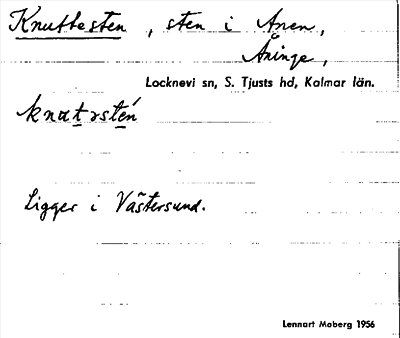 Knuttesten, sten i Anen,
Åninge,
Locknevi sn, S. Tjusts hd, Kalmar län.
Ligger i Västersund.
Lennart Moberg 1956